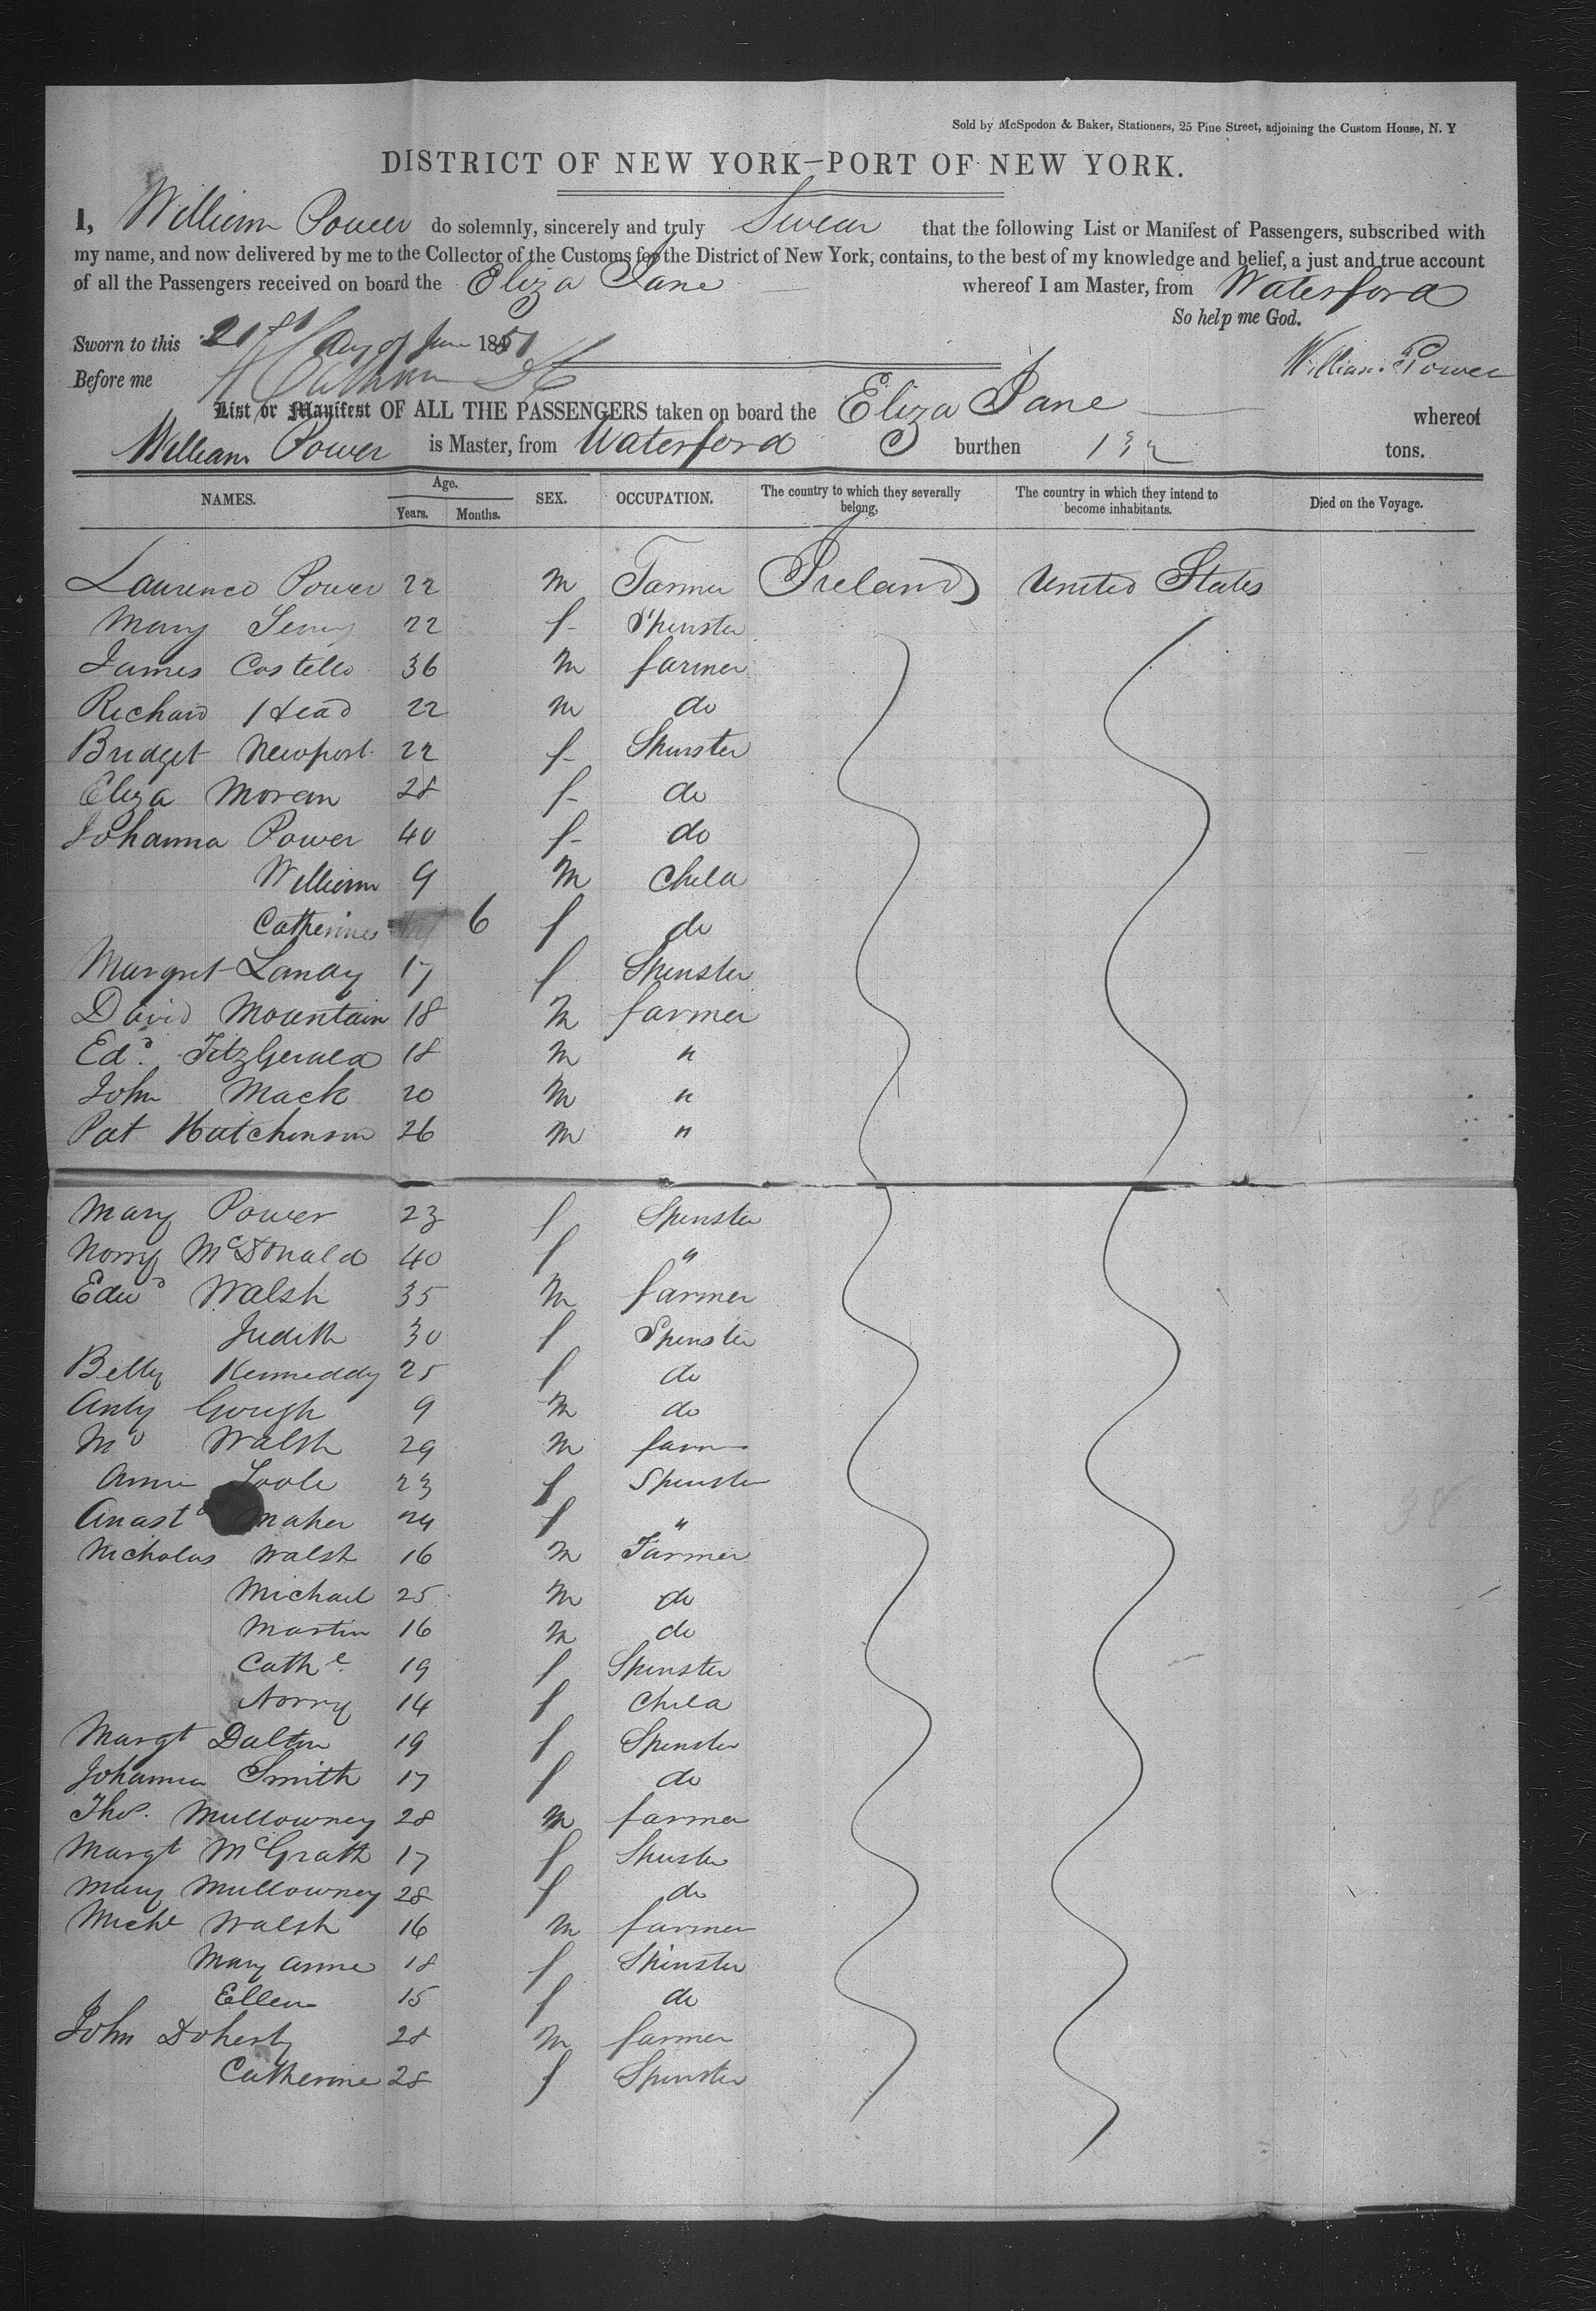 Sold by McSpedon & Baker, Stationers, 25 Pine Street, adjoining the Custom House, N. Y
DISTRICT OF NEW YORK—PORT OF NEW YORK.
I, William Power do solemnly, sincerely and truly Swear that the following List or Manifest of Passengers, subscribed with
my name, and now delivered by me to the Collector of the Customs for the District of New York, contains, to the best of my knowledge and belief, a just and true account
of all the Passengers received on board the Eliza Jane whereof I am Master, from Waterford
So help me God.
Sworn to this 21st day of June 1851
Before me William Power
List or Manifest OF ALL THE PASSENGERS taken on board the Eliza Jane whereof
William Power is Master, from Waterford burthen 132 tons.
NAMES. Age. Years. Months. SEX. OCCUPATION. The country to which they severally belong. The country in which they intend to become inhabitants. Died on the Voyage.
Laurence Power 22 M Farmer Ireland United States
Mary 22 f Spinster
James Costello 36 M farmer
Richard Head 22 M do
Bridget Newport 22 f Spinster
Eliza Moran 28 f do
Johanna Power 40 f do
William 9 M Child
Catherine 6 f do
Margret 17 f Spinster
David Mountain 18 M farmer
Edd. FitzGerald 18 M "
John Mack 20 M "
Pat Hutchinson 26 M "
Mary Power 23 f Spinster
Norry McDonald 40 f "
Edwd Walsh 35 M farmer
Judith 30 f Spinster
Betty Kenneddy 25 f do
Anty Gough 9 M do
Walsh 29 M farm
Anne Toole 23 f Spinster
Anast Maher 24 f "
Nicholas Walsh 16 M Farmer
Michael 25 M do
Martin 16 M do
Cathe 19 f Spinster
Norry 14 f Child
Margt Dalton 19 f Spinster
Johanna Smith 17 f do
Thos. Mullowney 28 M farmer
Margt McGrath 17 f Spinster
Mary Mullowney 28 f do
Michl Walsh 16 M farmer
Mary Anne 18 f Spinster
Ellen 15 f do
John Doherty 28 M farmer
Catherine 28 f Spinster
38